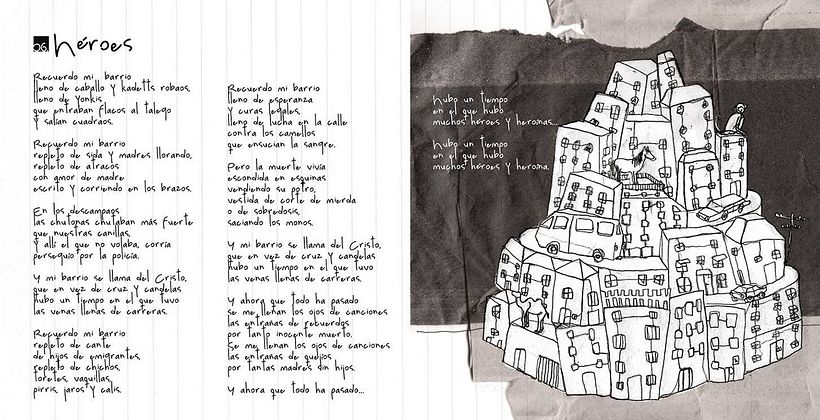 06. héroes
Recuerdo mi barrio
lleno de caballo y kadetts robaos,
lleno de yonkis
que entraban flacos al talego
y salían cuadraos.
Recuerdo mi barrio
repleto de sida y madres llorando,
repleto de atracos
con amor de madre
escrito y corriendo en los brazos.
En los descampaos
las chutonas chutaban más fuerte
que nuestras canillas,
y allí el que no volaba, corría
perseguío por la policía.
Y mi barrio se llama del Cristo,
que en vez de cruz y candelas
hubo un tiempo en el que tuvo
las venas llenas de carreras.
Recuerdo mi barrio
repleto de cante
de hijos de emigrantes,
repleto de chichos,
toretes, vaquillas,
pirris, jaros y calis.
Recuerdo mi barrio
lleno de esperanza
y curas legales,
lleno de lucha en la calle
contra los camellos
que ensucian la sangre.
Pero la muerte vivía
escondida en esquinas
vendiendo su potro,
vestida de corte de mierda
o de sobredosis,
saciando los monos.
Y mi barrio se llama del Cristo,
que en vez de cruz y candelas
hubo un tiempo en el que tuvo
las venas llenas de carreras.
Y ahora que todo ha pasado
se me llenan los ojos de canciones
las entrañas de recuerdos
por tanto inocente muerto.
Se me llenan los ojos de canciones
las entrañas de quejíos
por tantas madres sin hijos.
Y ahora que todo ha pasado...
Hubo un tiempo
en el que hubo
muchos héroes y heroínas...
Hubo un tiempo
en el que hubo
muchos héroes y heroína.